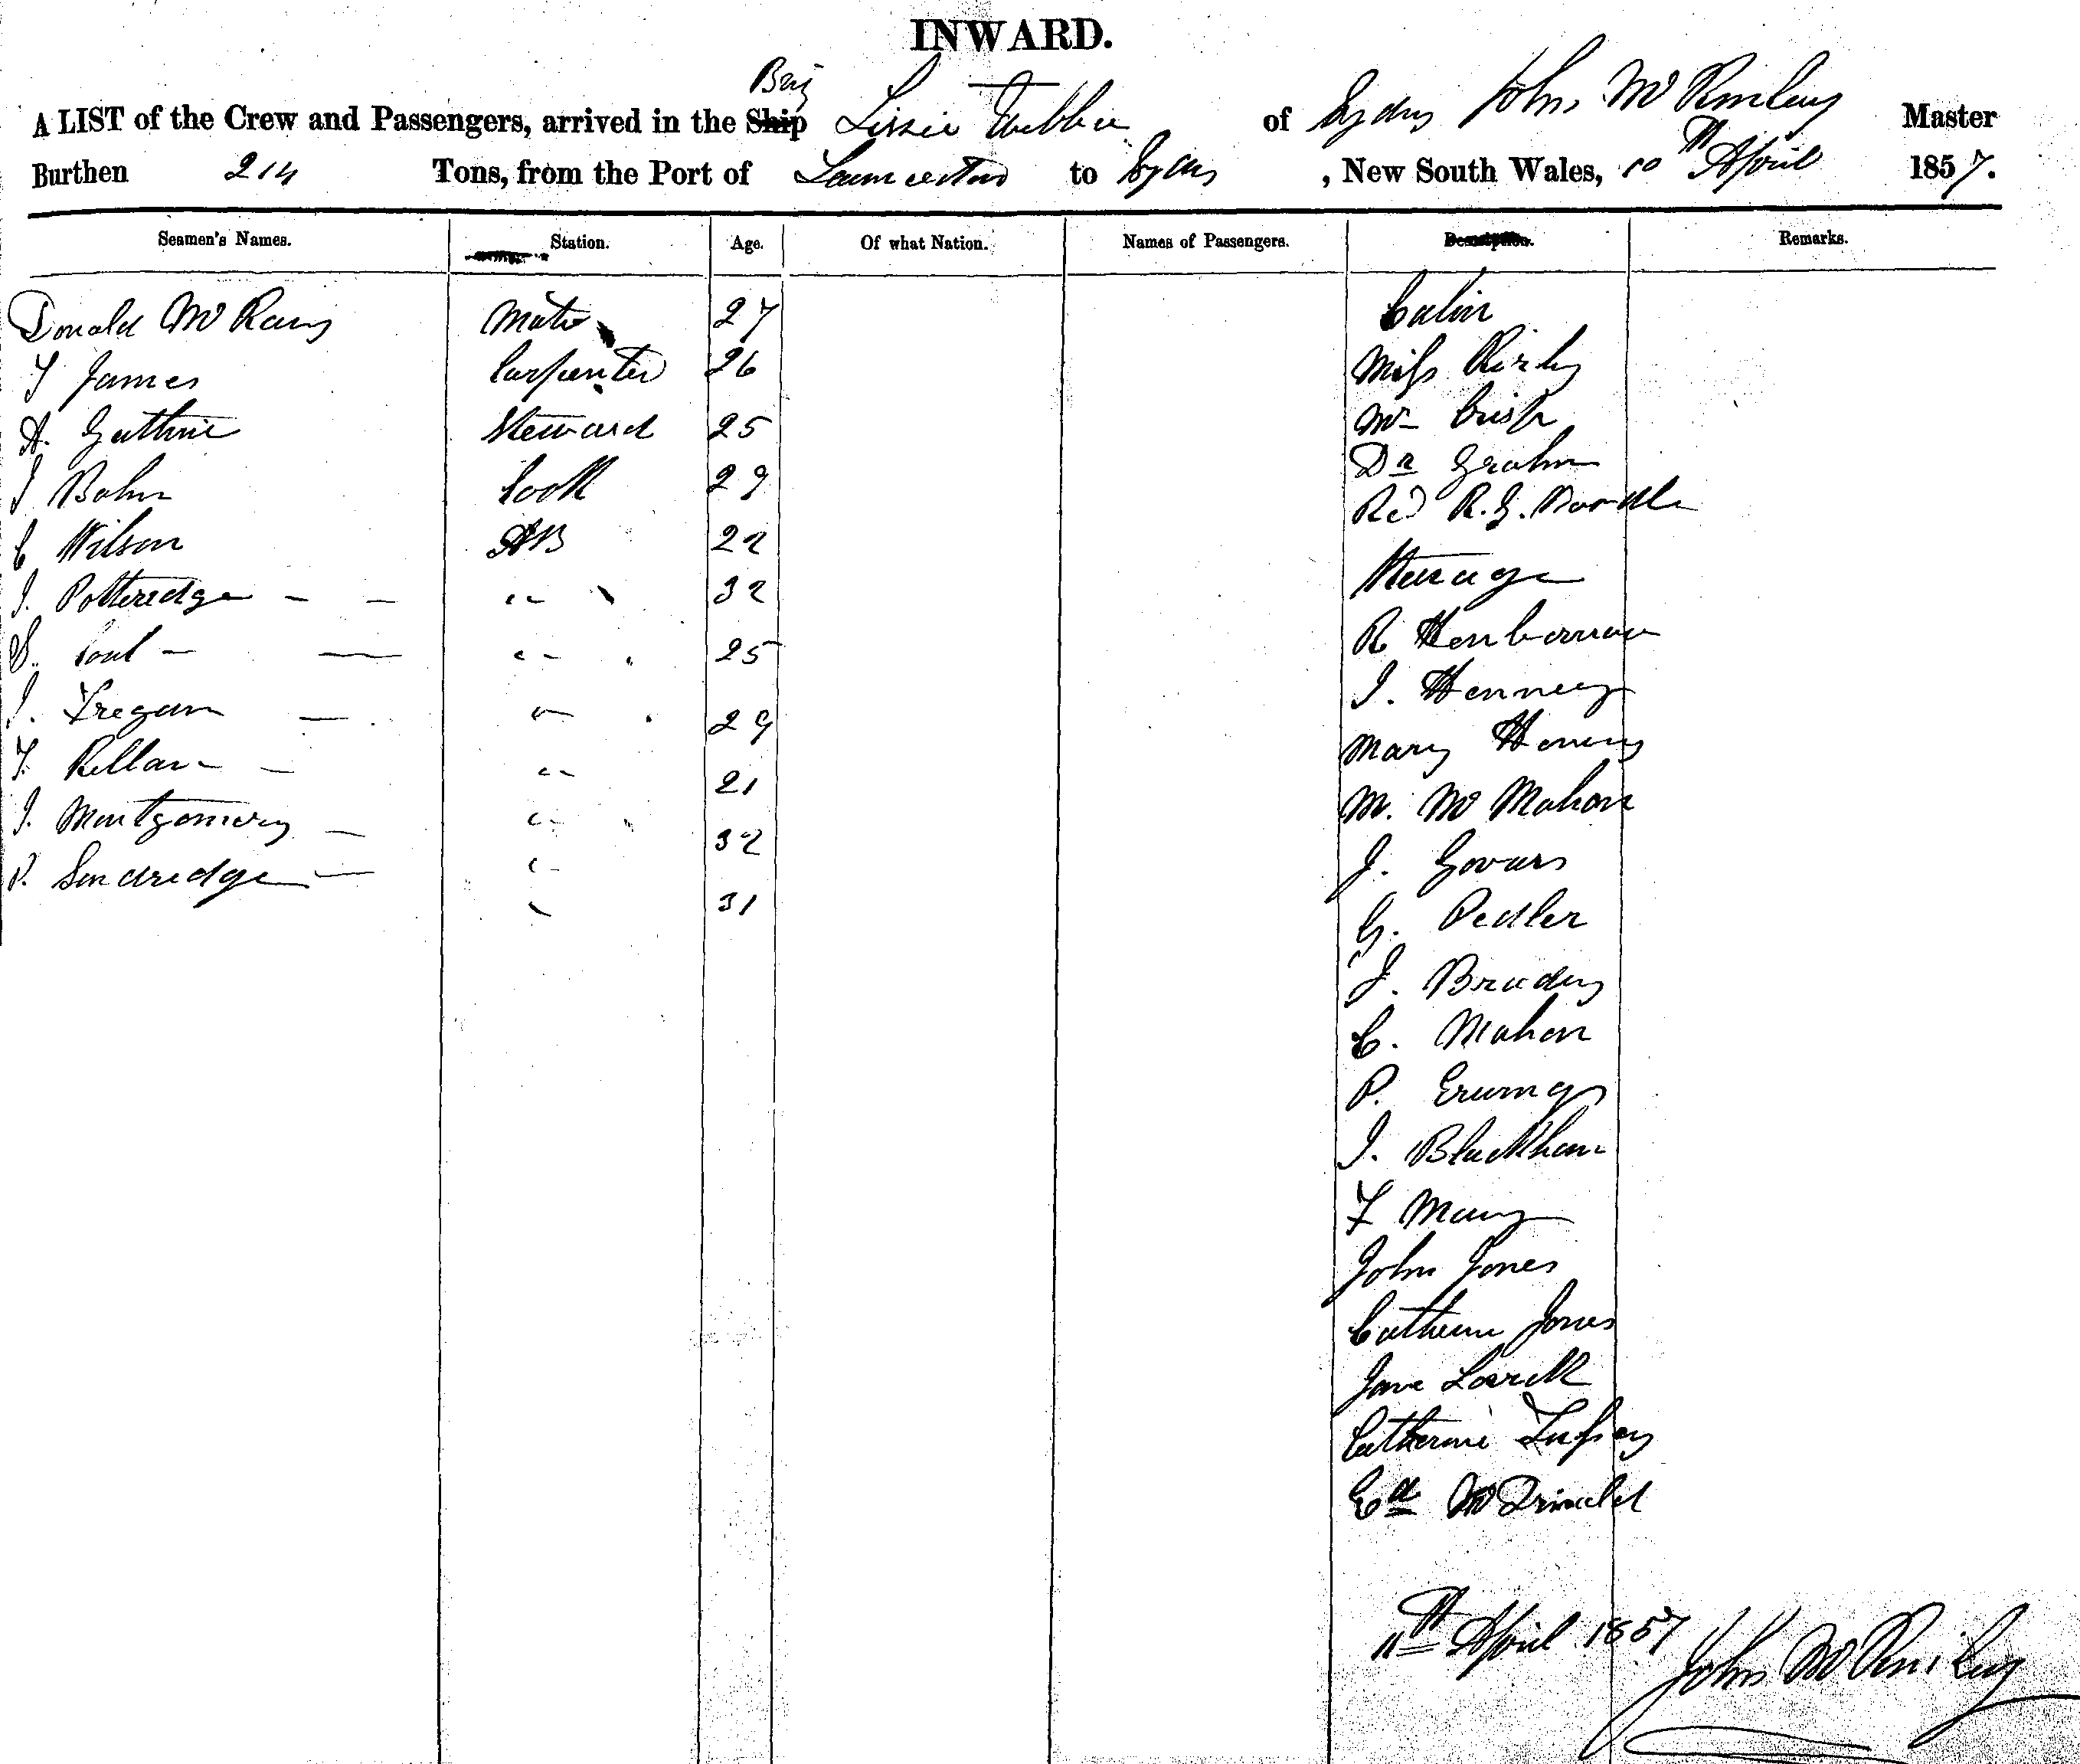 INWARD.
Brig
A LIST of the Crew and Passengers, arrived in the Ship Lizzie Webber of Sydney John McKinley Master
Burthen 214 Tons, from the Port of Launceston to Sydney, New South Wales, 10th April 1857.
Seamen's Names. Station. Age. Of what Nation. Names of Passengers. Description. Remarks.
Donald McKay Mate 27 Cabin
T James Carpenter 26 Miss Kirby
A. Guthrie Steward 25 Mr
J Cook 29 Dr Graham
C Wilson AB 22 Revd R. G.
J. Potteredge - - " 32 Steerage
S. - - " 25 R
J. Fregan - " 29 J. Henney
T. - " 21 Mary Henney
J. Montgomery - " 32 M. McMahon
P. - " 31 J. Govars
G. Pedler
J. Brady
C. Mahon
P.
J. Blackham
F
John Jones
Catherine Jones
Jane
Catherine
Ed McDonald
11th April 1857
John McKinley